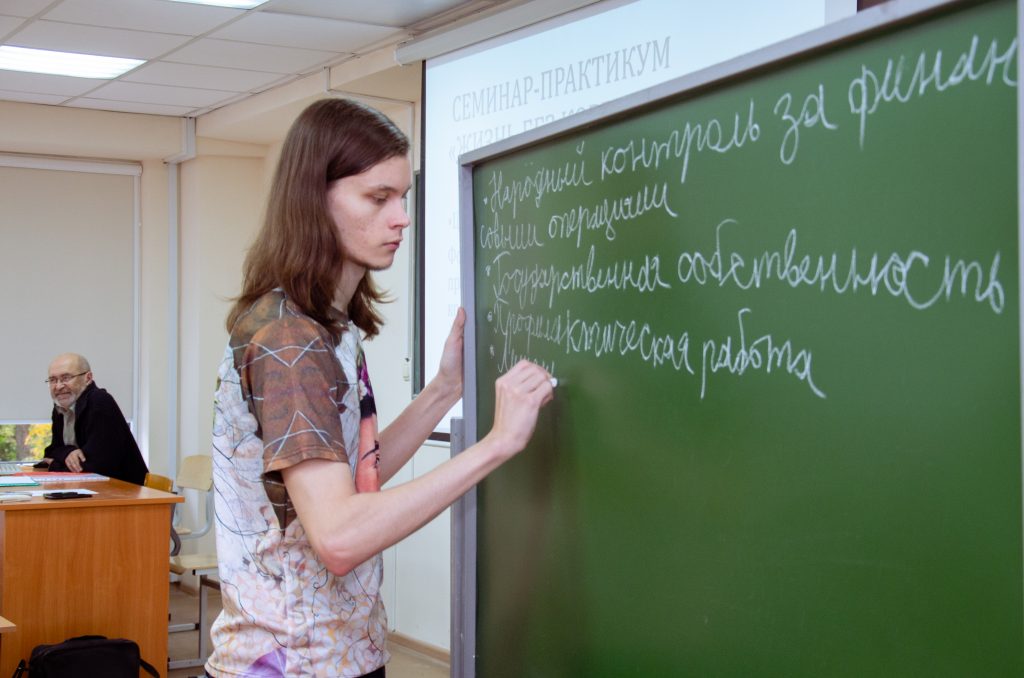 СЕМИНАР-ПРАКТИКУМ
«ЖИЗНЬ БЕЗ
• Народный контроль за финан
совыми операциями
• Государственная собственность
• Профилактическая работа